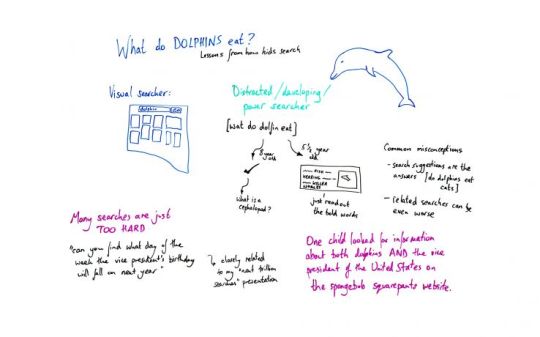 What do DOLPHINS eat?
Lessons from how kids search
Visual searcher:
dolphin
Distracted / developing /
power searcher
[wat do dolfin eat]
8 year
old
5½ year
old
What is a
cephalopod?
FISH
HERRING
KILLER
WHALES
just read out
the bold words
Common misconceptions
- search suggestions are the
answers [do dolphins eat
cats]
- related searches can be
even worse
Many searches are just
TOO HARD
"can you find what day of the
week the vice president's birthday
will fall on next year"
closely related
to my "next trillion
searches" presentation
One child looked for information
about both dolphins AND the vice
president of the United States on
the spongebob squarepants website.